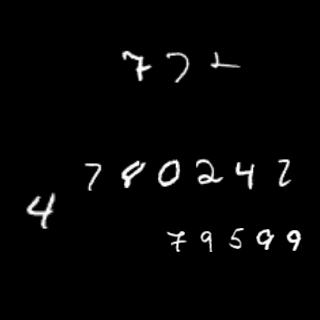 77
780242
4
79599